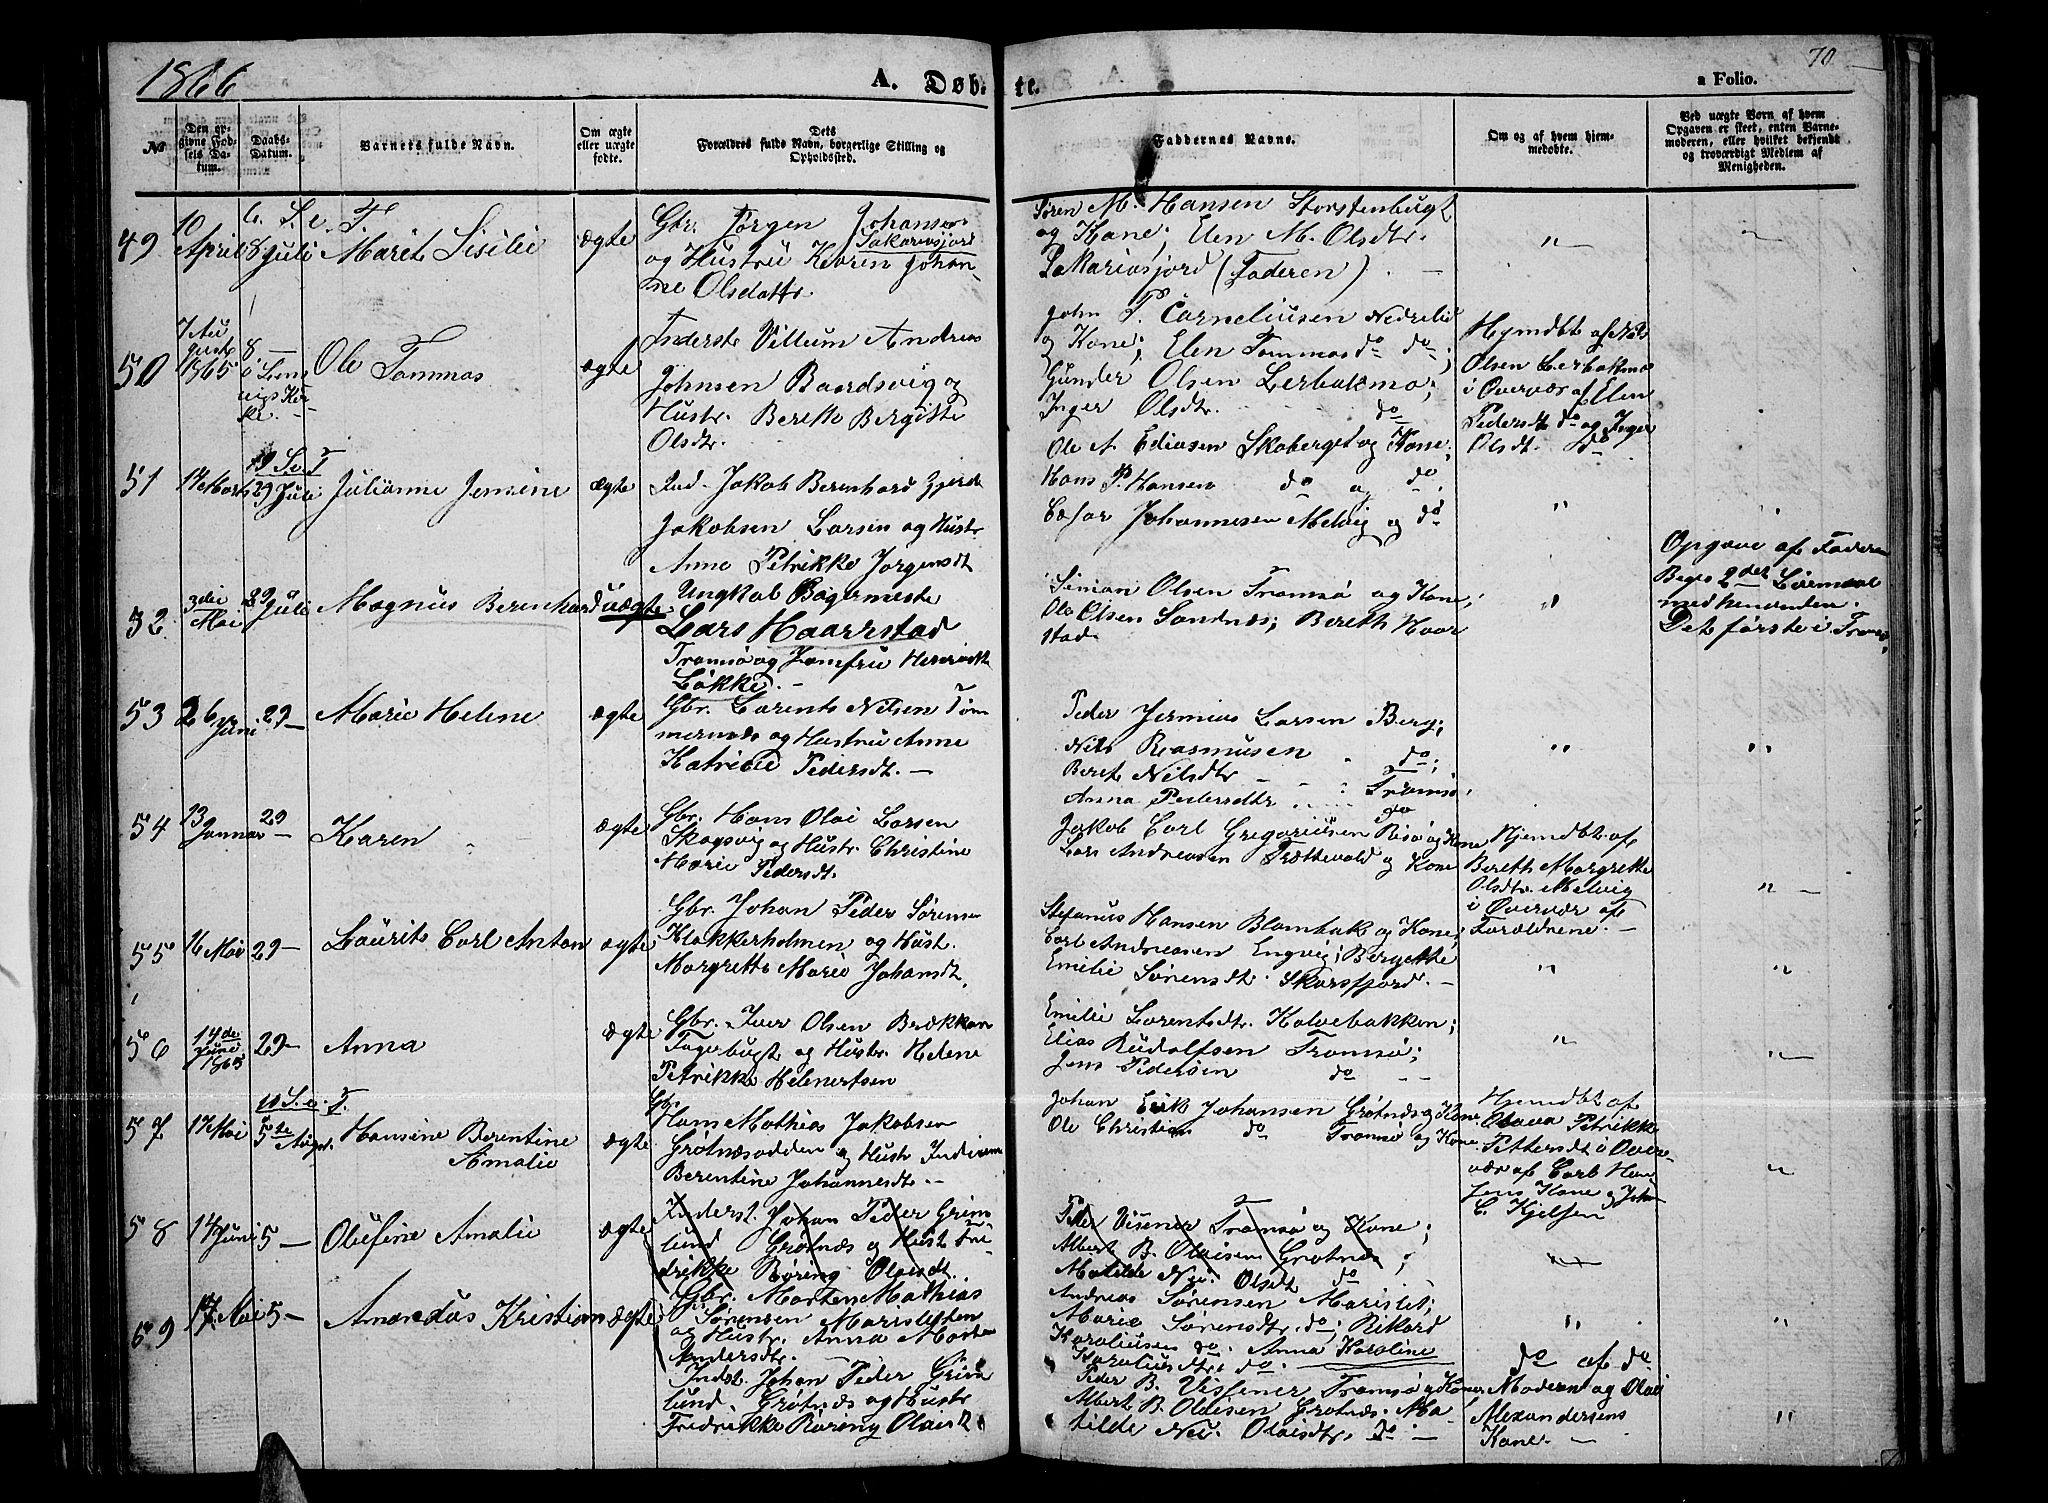 1866
A. Døb-
te.
a Folio.
70
№
Den op-
givne Fød-
sels Da-
tum.
Daabs-
Datum.
Barnets fulde Navn.
Om ægte
eller uægte
fødte.
Dets
Forældres fulde Navn, borgerlige Stilling og
Opholdssted.
Faddernes Navne.
Om og af hvem hjem-
medøbte.
Ved uægte Børn af hvem
Opgaven er skeet, enten Barne-
moderen, eller hvilket bekjendt
og troværdigt Medlem af
Menigheden.
49
10
April
6. S. e. T.
8 Juli
Marit Lisilie
ægte
Gbr. Jørgen Johansen
Sakariasjord
og Hustru Karen Johan-
ne Olsdattr.
Søren M. Hansen Storstenbugt
og Kone; Elen M. Olsdtr.
Sakariasjord (Faderen). —
"
50
7 Au
gust
1865
8 —
i Len
vigs Kir
ke.
Ole Tommas
ægte
Inderst Villum Andreas
Johnsen Baardsvig og
Hustr. Bereth Bergitte
Olsdtr.
John P. Corneliusen Nedrelid
og Kone; Elen Tommasd do do;
Gunder Olsen Lerbakmo;
Inger Olsdtr. do
Hjmdbt af Nils
Olsen Lerbakmo
i Overvær af Elen
Pedersdt do og Inger
Olsdt. do
51
14 Marts
9 S. e. T
29 Juli
Julianne Jensine
ægte
Ind. Jakob Berenhard
Jakobsen Larsen og Hustr
Anne Petrikke Jørgensdt
Ole A. Ediasen Skoberget og Kone;
Hans P. Hansen do og do;
Johannesen Melvig og do
"
52
3die
Mai
29
Juli
Magnus Berenhard
uægte
Ungkal Bagermester
Lars Haarrstad
Tromsø og Jomfru Henrikke
Løkke. —
Simon Olsen Tromsø og Kone;
Ole Olsen Sandnæs; Bereth Haar
stad.
"
Opgave af Faderen
Beges 2det Leiermaal
med hinanden.
Det første i Tromsø
53
26
Juni
29 —
Marie Helene
ægte
Gbr. Lorents Nilsen Tøm
mernæs og Hustru Anne
Katrine Pedersdt. —
Peder Jermias Larsen Berg;
Nils Rasmusen do;
Beret Nilsdtr — Tromsø;
Anna Pedersdtr do
"
"
54
13
Januar
29
—
Karen
ægte
Gbr. Hans Olai Larsen
Skogsvig og Hustr. Christine
Marie Pedersdt.
Jakob Carl Gregoriusen Risø og Kone
Lars Andreasen Trættevold og Kone
Hjemdbt. af
Bereth Margrette
Olsdtr. Melvig
i Overvær af
Forældrene. —
" —
55
16 Mai
29 —
Laurits Carl Anton
ægte
Gbr. Johan Peder Sørensen
Klokkerholmen og Hust.
Margrette Marie Johansdt.
Stefanus Hansen Blombak og Kone;
Carl Andreasen Engvig; Bergette
Emilie Sørensdt. Skorsfjord. —
"
"
56
14de
Juni
1865
29 —
Anna
ægte
Gbr. Iver Olsen Brækkan
bugt og Hustr. Helene
Petrikke Helnertsen
Emilie Lorentsdtr. Kalvebakken;
Elias Rudolfsen Tromsø;
Jens Pedersen do — —
"
"
57
17 Mai
10 S. e. T.
5te
August.
Hansine Berentine
Amalie
ægte
Gbr.
Hans Mathias Jakobsen
Grøtnæsodden og Hustr
Berentine Johannesdt. —
Johan Erik Johansen Grøtnæs og Kone.
Ole Christian do Tromsø og Kone
Hjemdbt af
Petrikke
Pettersdt i Over-
vær af Carl Han
sens Kone og John
C. Kjelsen
"
58
14
Juni
5 —
Olufine Amalie
ægte
Inderst. Johan Peder Grim
lund Grøtnæs og Hust Fri
drekke Røring Olaisdt.
Peder Visener Tromsø og Kone;
Albert B. Olaisen Grøtnæs;
Matilde Nei. Olsdt do
"
69
17 Mai
5 —
Amandus Kristian
ægte
Gbr. Morten Mathias
Sørensen Marisletten
og Hustr. Anna Marta
Andersdtr. —
Andreas Sørensen Marislet;
Marie Sørensdtr. do; Rikard
Karoliusen do. Anna Karoline
Karoliusdtr. do.
"
"
Indst. Johan Peder Grim
lund. Grøtnæs og Hustr
Fredrikke Røring Olaisdt
Peder B. Vissener Tromsø og Kone.
Albert B. Olaisen Grøtnæs. Ma
tilde Nei. Olaisdtr. do —
do af do
Modern og Olai
Alexandersens
Kone. —
"